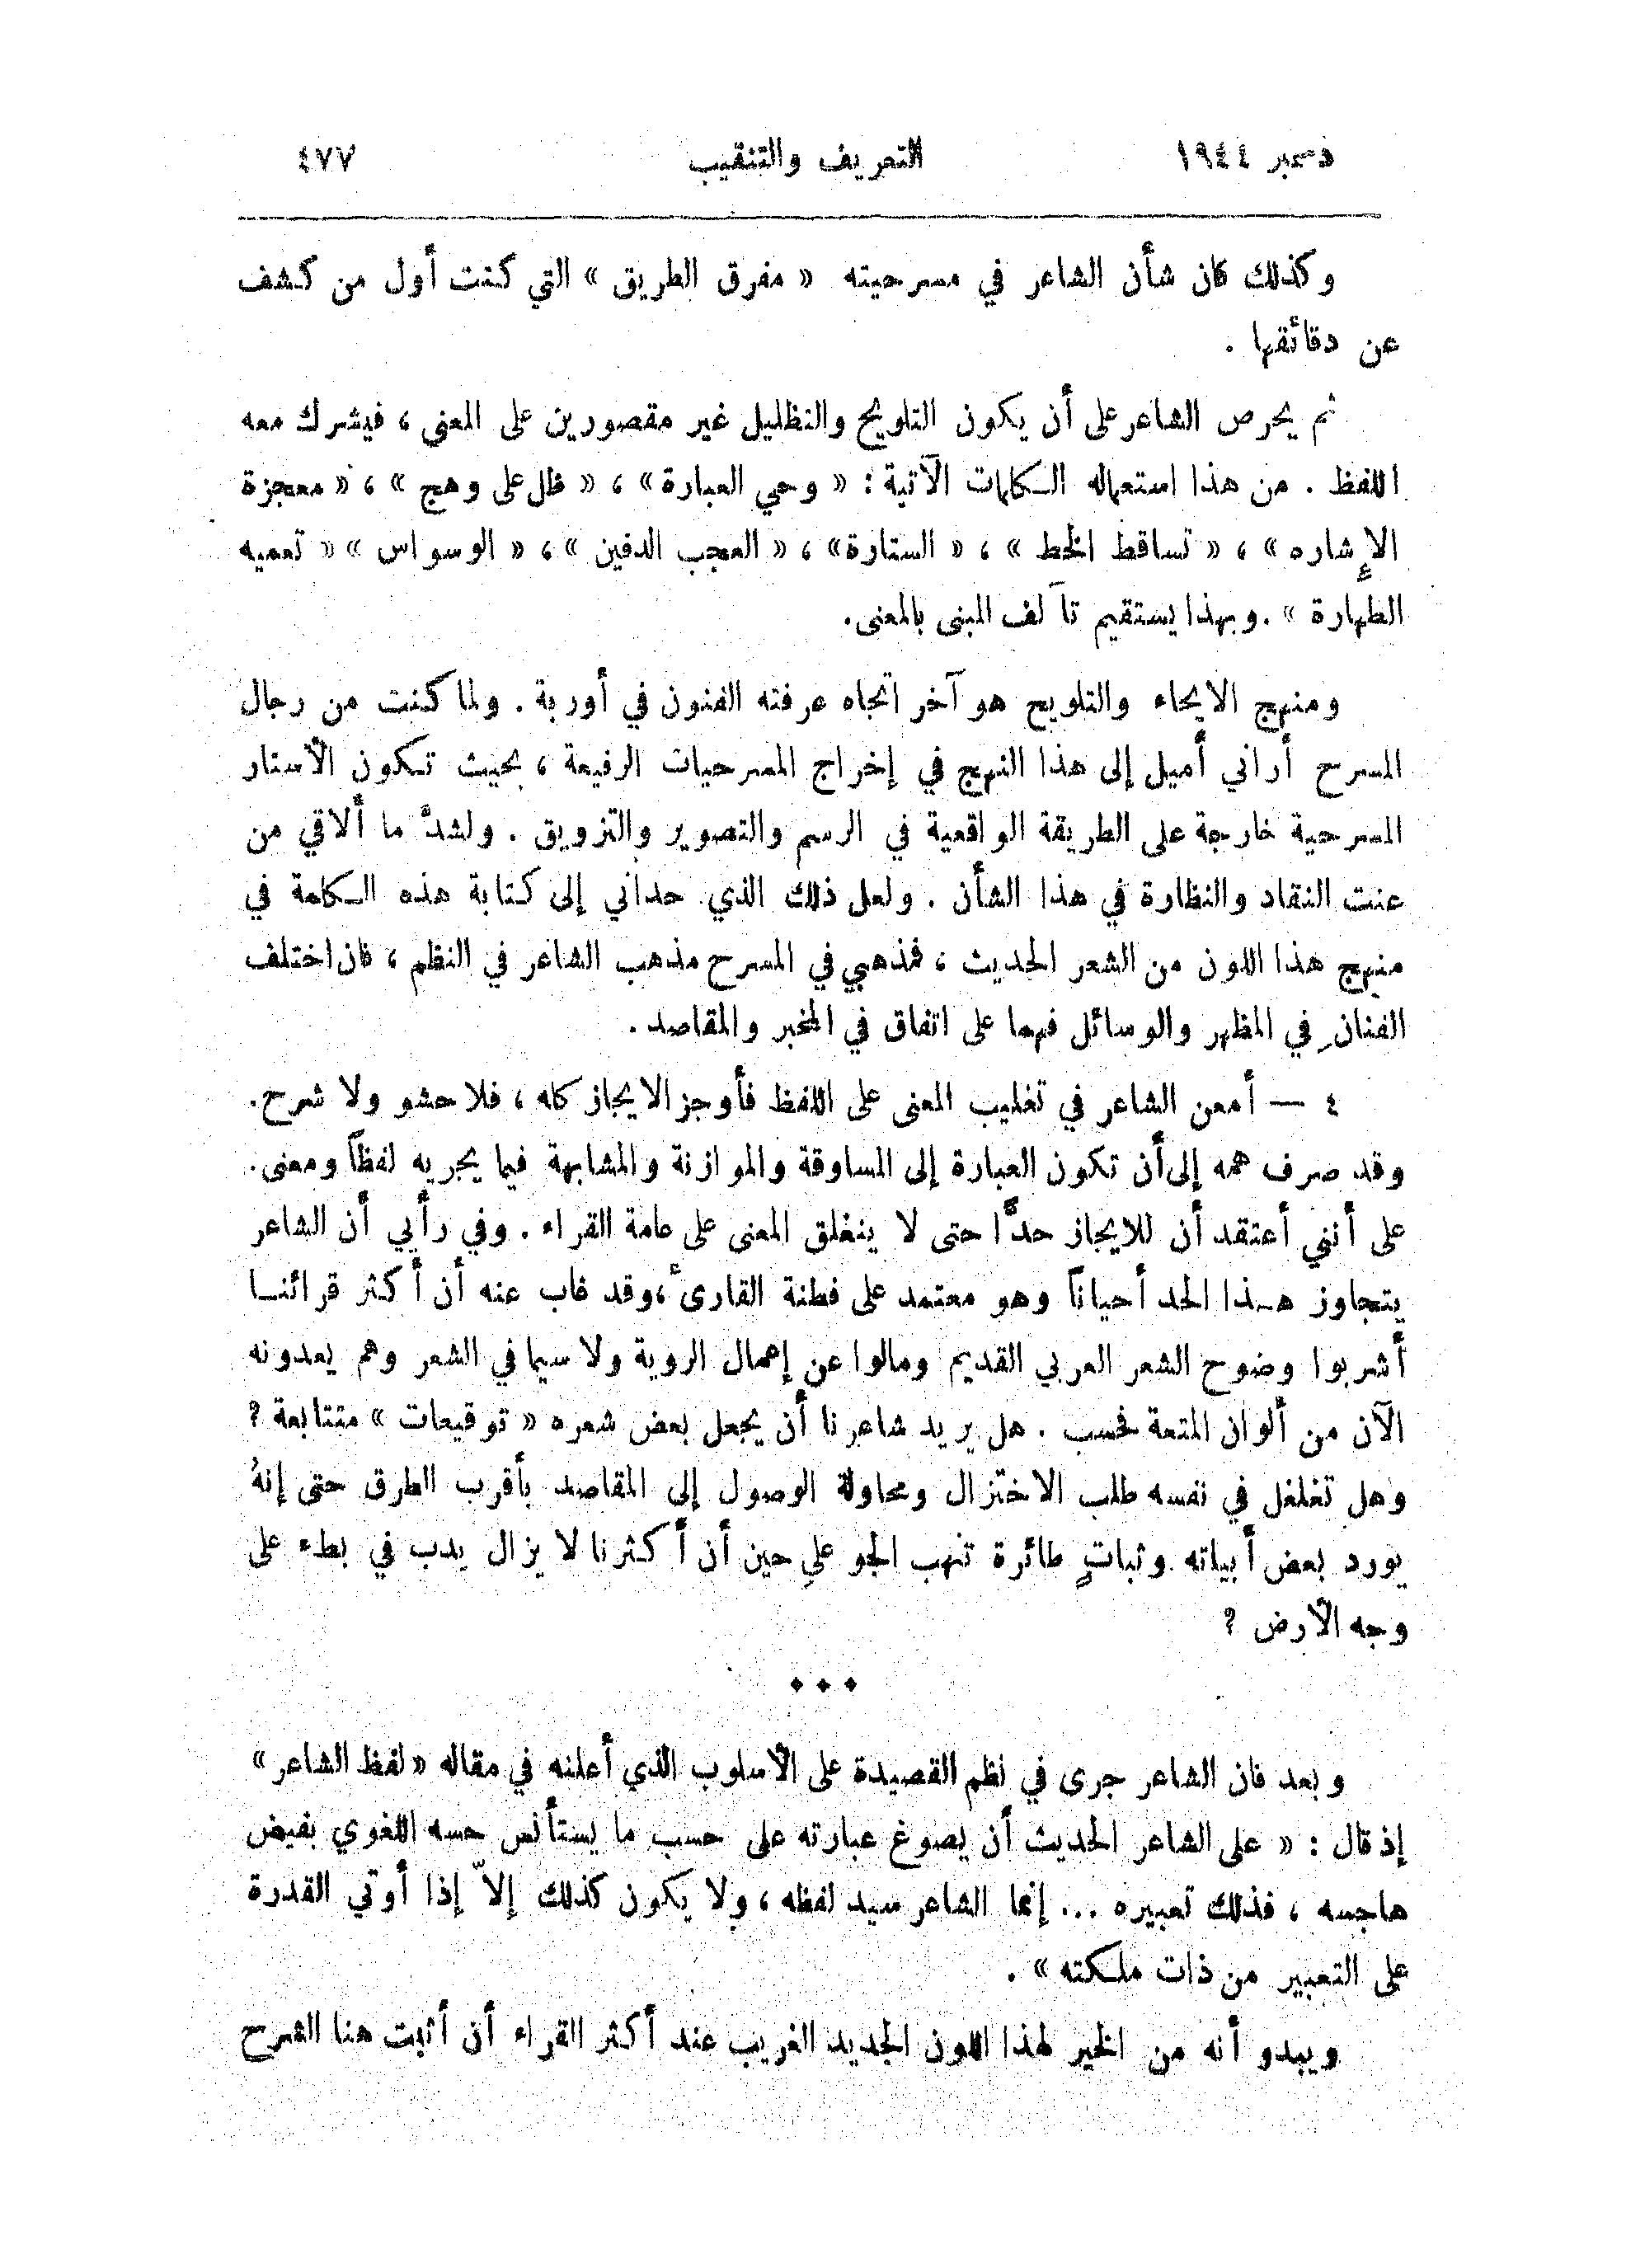 دسمبر ١٩٤٤ التعريف والتنقيب ٤٧٧
وكذلك كان شأن الشاعر في مسرحيته « مفرق الطريق » التي كنت أول من كشف
عن دقائقها .
ثم يحرص الشاعر على أن يكون التلويح والتظليل غير مقصورين على المعنى ، فيشرك معه
اللفظ . من هذا استعماله الكلمات الآتية : « وحي العبارة » ، « ظل على وهج » ، « معجزة
الإشاره » ، « تساقط الخط » ، « الستارة » ، « العجب الدفين » ، « الوسواس » « تعميه
الطهارة » . وبهذا يستقيم تآلف المبنى بالمعنى.
ومنهج الايحاء والتلويح هو آخر اتجاه عرفته الفنون في أوربة . ولما كنت من رجال
المسرح أراني أميل إلى هذا النهج في إخراج المسرحيات الرفيعة ، بحيث تكون الأستار
المسرحية خارجة على الطريقة الواقعية في الرسم والتصوير والتزويق . ولشدَّ ما ألاقي من
عنت النقاد والنظارة في هذا الشأن . ولعل ذلك الذي حداني إلى كتابة هذه الكلمة في
منهج هذا اللون من الشعر الحديث ، فمذهبي في المسرح مذهب الشاعر في النظم ، فان اختلف
الفنانِ في المظهر والوسائل فهما على اتفاق في المخبر والمقاصد .
٤ — أمعن الشاعر في تغليب المعنى على اللفظ فأوجز الايجاز كله ، فلا حشو ولا شرح.
وقد صرف همه إلى أن تكون العبارة إلى المساوقة والموازنة والمشابهة فيما يجريه لفظاً ومعنى.
على أنني أعتقد أن للايجاز حدًّا حتى لا ينغلق المعنى على عامة القراء . وفي رأيي أن الشاعر
يتجاوز هذا الحد أحياناً وهو معتمد على فطنة القارئ ، وقد غاب عنه أن أكثر قرائنا
أشربوا وضوح الشعر العربي القديم ومالوا عن إعمال الروية ولا سيما في الشعر وهم يعدونه
الآن من ألوان المتعة فحسب . هل يريد شاعرنا أن يجعل بعض شعره « توقيعات » متتابعة ؟
وهل تغلغل في نفسه طلب الاختزال ومحاولة الوصول إلى المقاصد بأقرب الطرق حتى إنهُ
يورد بعض أبياته وثباتٍ طائرة تنهب الجو على حين أن أكثرنا لا يزال يدب في بطء على
وجه الأرض ؟
• • •
وبعد فان الشاعر جرى في نظم القصيدة على الأسلوب الذي أعلنه في مقاله « لفظ الشاعر »
إذ قال : « على الشاعر الحديث أن يصوغ عبارته على حسب ما يستأنس حسه اللغوي بفيض
هاجسه ، فذلك تعبيره ... إنما الشاعر سيد لفظه ، ولا يكون كذلك إلاّ إذا أوتي القدرة
على التعبير من ذات ملكته » .
ويبدو أنه من الخير لهذا اللون الجديد الغريب عند أكثر القراء أن أثبت هنا الشرح